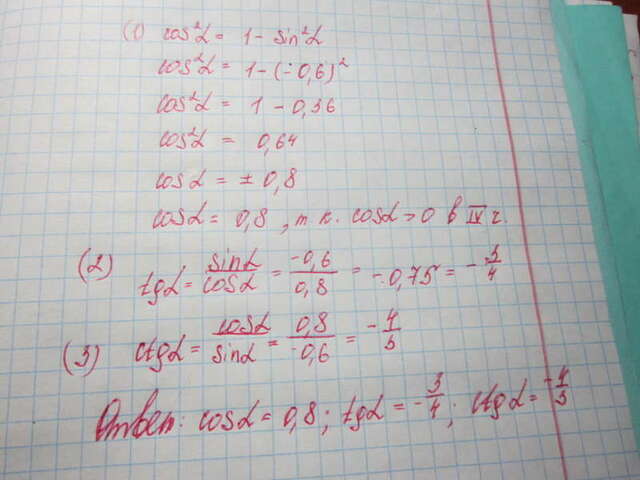 (1) cos²α = 1 - sin²α
cos²α = 1 - (-0,6)²
cos²α = 1 - 0,36
cos²α = 0,64
cos α = ± 0,8
cos α = 0,8, т.к. cos α > 0 в IV ч.
(2) tg α = sin α / cos α = -0,6 / 0,8 = -0,75 = -3/4
(3) ctg α = cos α / sin α = 0,8 / -0,6 = -4/3
Ответ: cos α = 0,8; tg α = -3/4; ctg α = -4/3